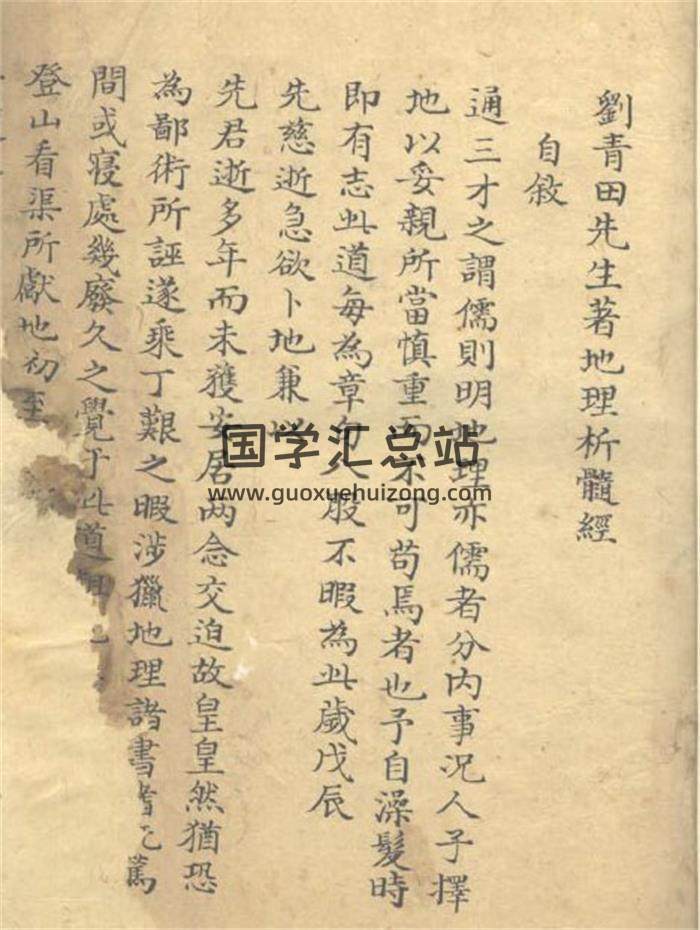 劉青田先生著地理析髓經
自敘
通三才之謂儒則明地理亦儒者分内事况人子擇
地以妥親所當慎重而不可苟焉者也予自澡髮時
即有志此道每為章句人股不暇為此歲戊辰
先慈逝急欲卜地兼以
先君逝多年而未獲安居兩念交迫故皇皇然猶恐
為鄙術所誣遂乘丁艱之暇涉獵地理諸書
間或寝處幾廢久之覺于此道
登山看渠所獻地初至
国学汇总站
www.guoxuehuizong.com